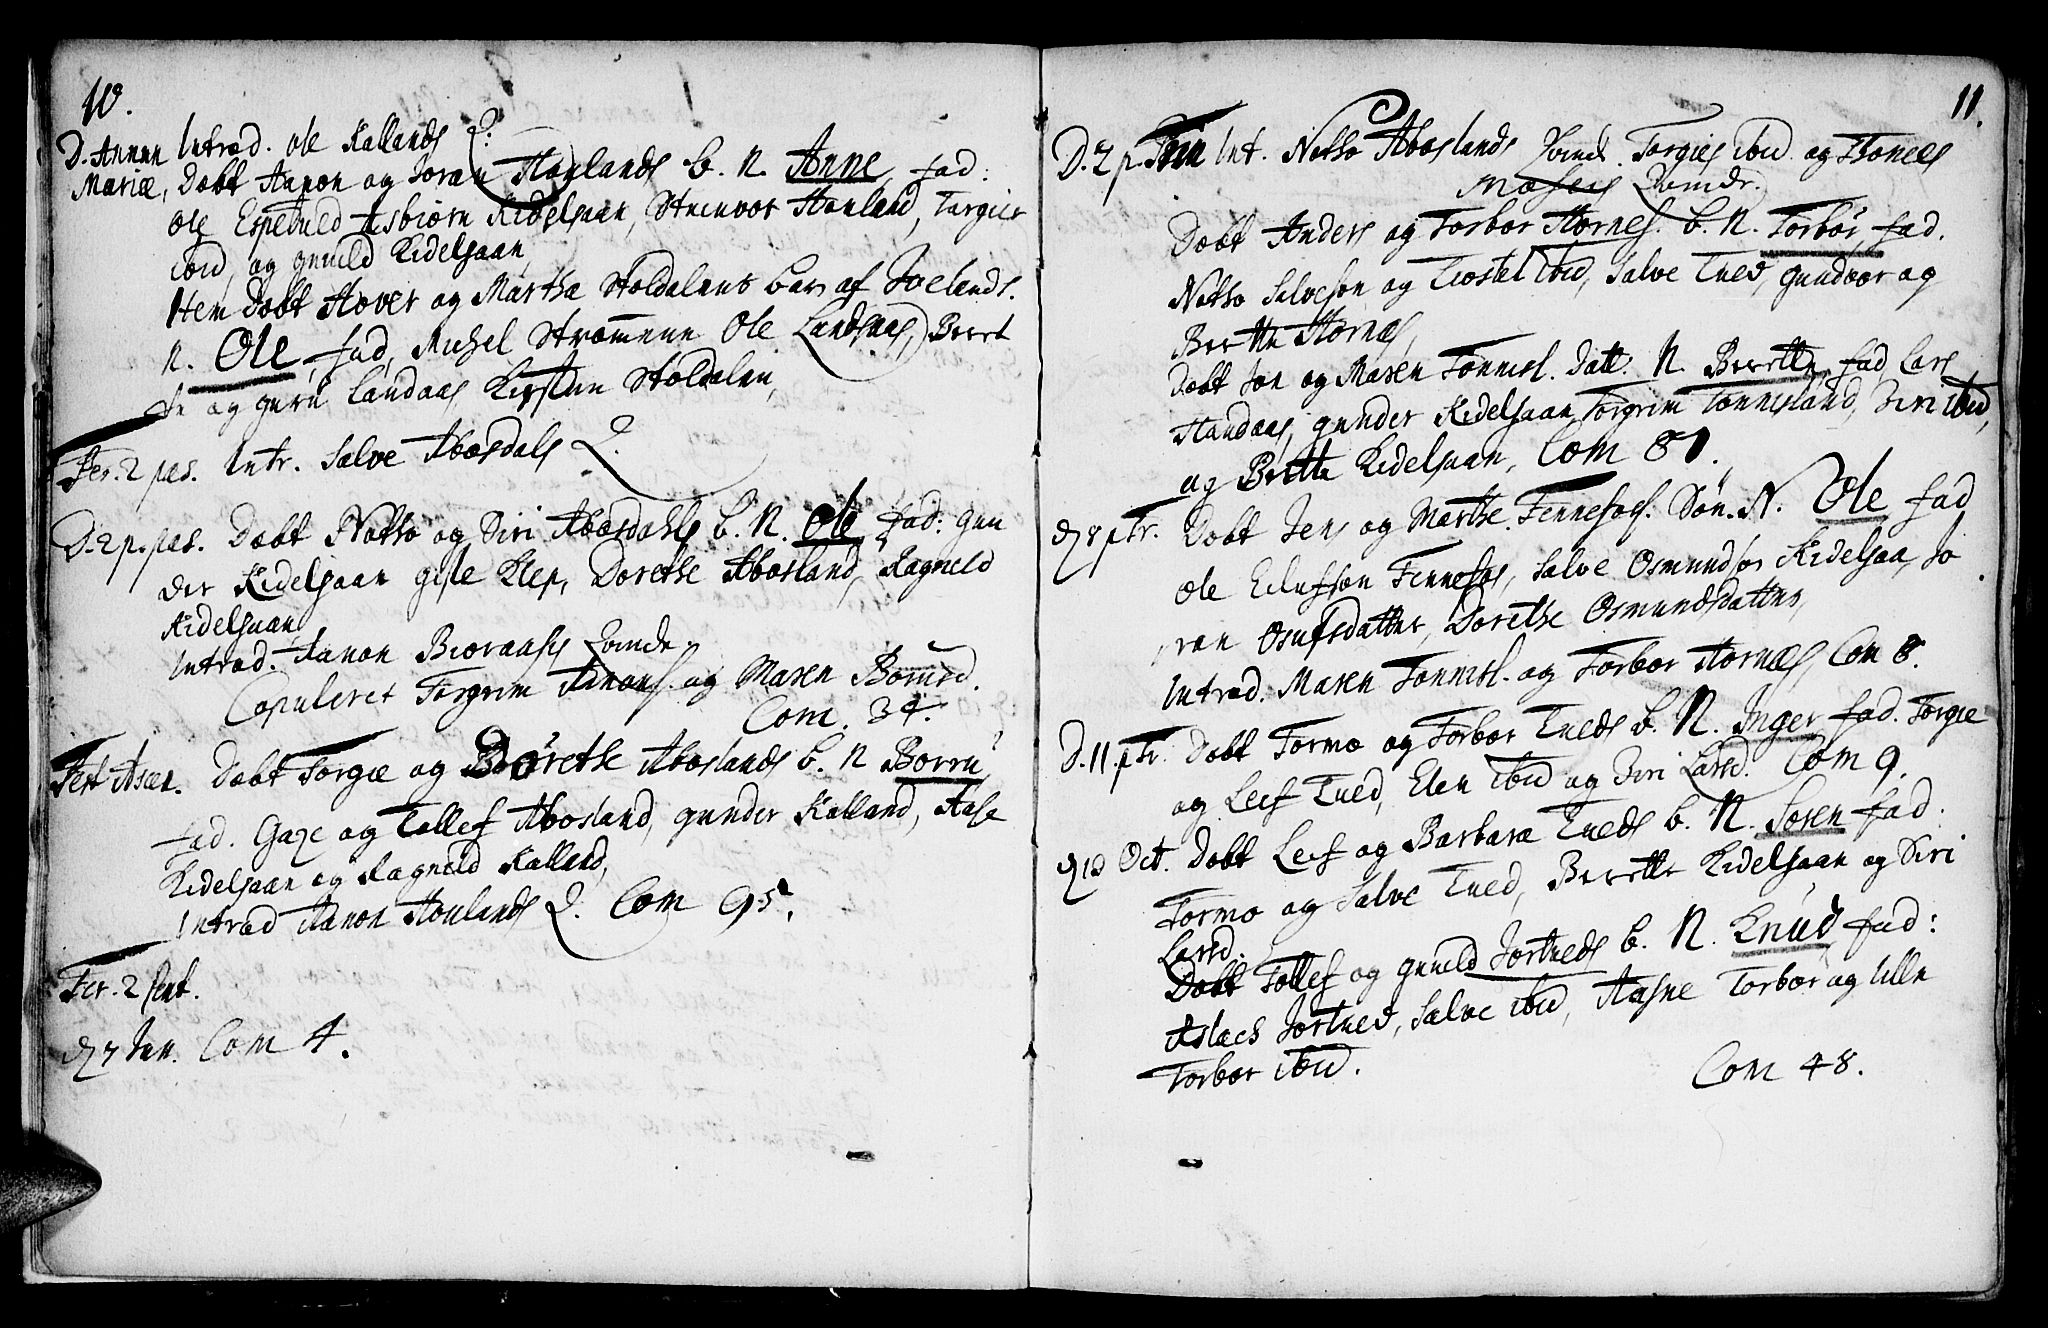 10.
D. Annun Introd. Ole Kallands Q.
Mariæ, Døbt Aanon og Joran Haulands b. N. Anne, fad:
Ole Espetveld Asbiørn Kidelsaan, Steinvor Hauland, Torgier
ibid, og gunild Kidelsaan,
Item Døbt Hover og Martha Stoldalens barn af Joelands.
N. Ole, fad, Michel Strømmene Ole Landaas, Beret
te og guru Landaas Kirsten Stoldalen,
Fer. 2 pas. Intr. Salve Abosdals Q.
D. 2 p. pas. Døbt Notto og Siri Abosdahls b. N. Ole fad: gun
der Kidelsaan gisle Klep, Dorethe Abosland, Ragnild
Kidelsaan,
Introd. Aanon Bioraases Qvinde,
Copuleret Torgrim Aanons. og Maren
Com. 34.
Fest Ascen. Døbt Torgie og Dorethe Aboslands b. N Borru,
fad. Gaze og Tollef Abosland, gunder Kalland, Aase
Kidelsaan og Ragnild Kalland,
Introd Aanon Houlands Q. Com 95.
Fer. 2 pent.
d 7 Jun. Com 4.
11.
D. 2 p. Trin Int. Notto Aboslands Qvind. Torgies ibid og Tønnes
Moseis Qvindr.
Døbt Anders og Torbor Hornes. b. N. Torbør, fad.
Notto Salveson og Kiøstel ibid, Salve Tved, gundvor og
Berthe Hornes,
Døbt Jon og Maren Tonnisl. Datt. N. Berette, fad, Lars
Handaas, gunder Kidelsaan Torgrim Tonnisland, Siri ibid,
og Britte Kidelsaan, Com 81.
d 8 p Tr. Døbt Jens og Marthe Fennefos. Søn. N. Ole fad
Ole Eilufsøn Fennefos, Salve Osmundsøn Kidelsaa, Jo
ran Osufsdatter, Dorethe Osmundsdatter,
Introd. Maren Tonnisl. og Torbor Hornes Com 8.
D. 11. p Tr. Døbt Tormo og Torbor Tveds b. N. Inger fad. Torgie
og Leif Tved, Elen ibid og Siri Larsd. Com 9.
d 10 Oct. Døbt Leif og Barbara Tveds b. N. Soren fad.
Tormo og Salve Tved, Berette Kidelsaan og Siri
Larsd.
Døbt Tollef og gunild Jortveds b. N. Knud fad:
Aslach Jortved, Salve ibid, Aasne Torbor og Ulle
Torbor ibid.
Com 48.